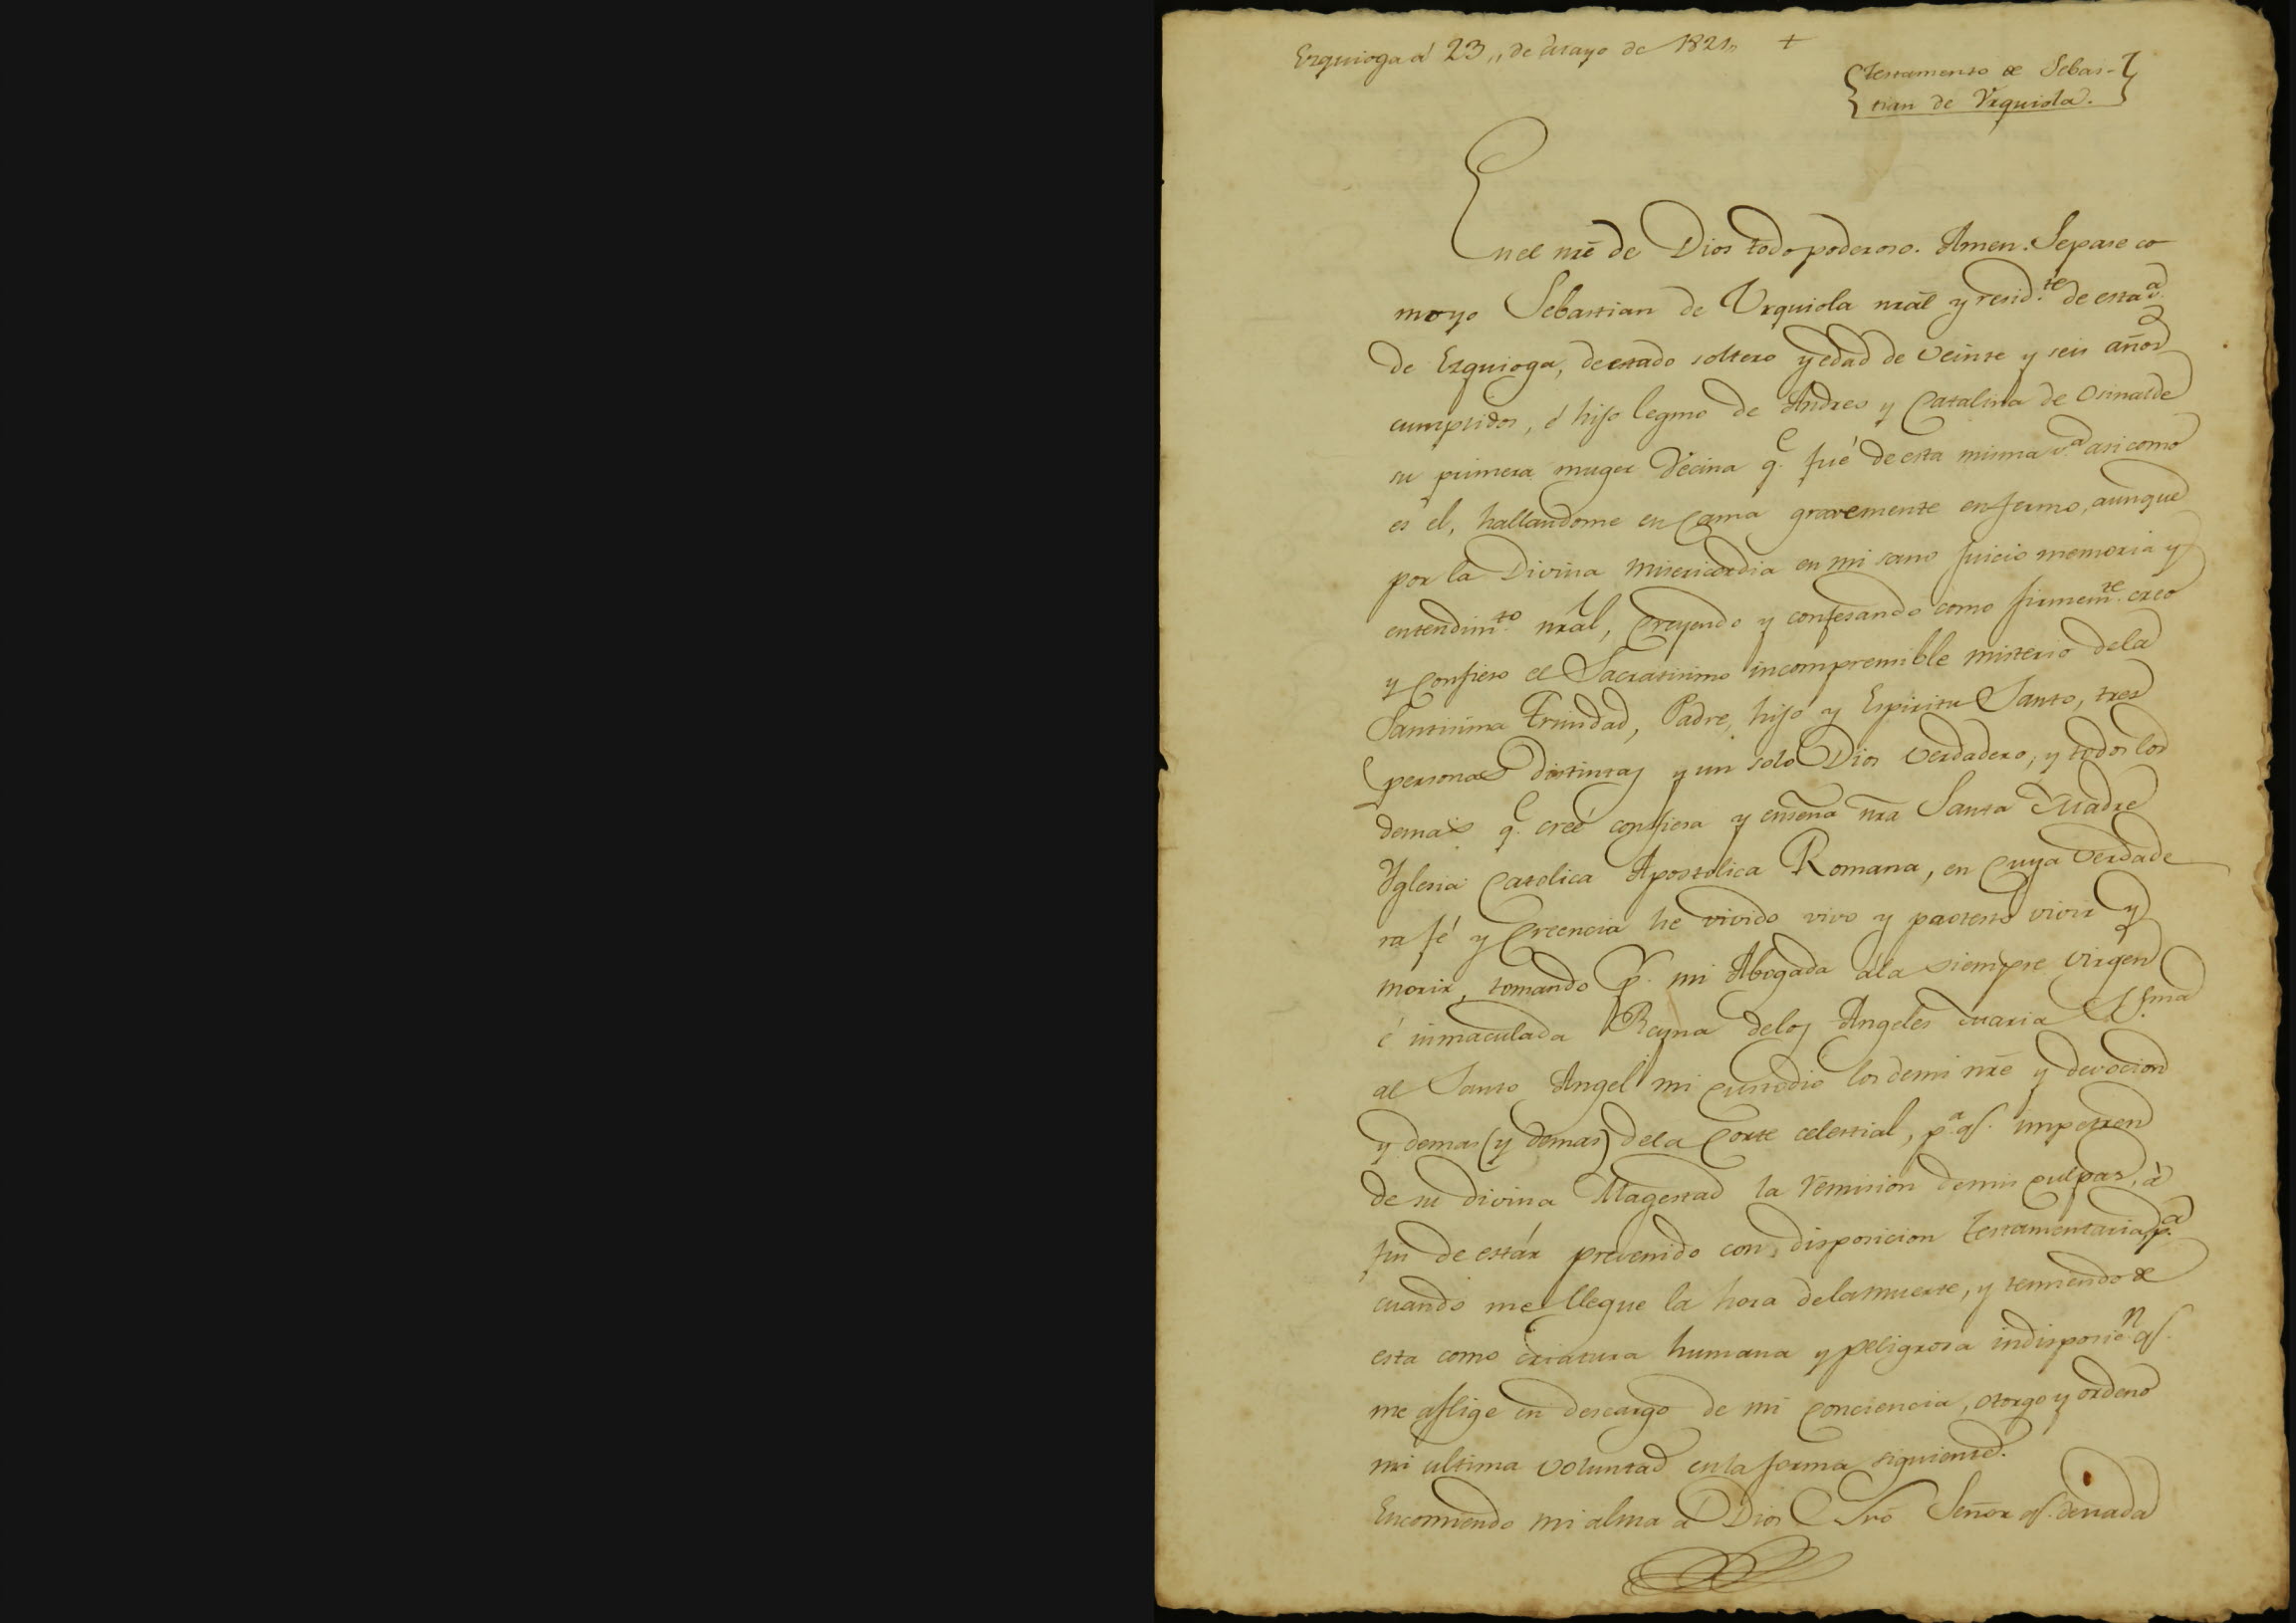 Ezquioga á 23,, de Mayo de 1821,, +
Testamento de Sebas-
tian de Urquiola.
En el nrē de Dios todo poderoso. Amen. Sepase co
mo yo Sebastian de Urquiola nrāl y resid.te de esta v.a
de Ezquioga, de estado soltero y edad de veinte y seis años
cumplidos, é hijo legmo de Andres y Catalina de Osinalde
su primera muger Vecina q.e fué de esta misma v.a asi como
es el, hallandome en Cama gravemente enfermo, aunque
por la Divina misericordia en mi sano Juicio memoria y
entendim.to nrāl, Creyendo y confesando como firmem.te creo
y Confieso el Sacratisimo incompremible misterio dela
Santisima Trinidad, Padre, hijo y Espiritu Santo, tres
personas distintas y un solo Dios Verdadero, y todos los
demas q.e creé confiesa y enseña nrā Santa Madre
Yglesia Catolica Apostolica Romana, en Cuya Verdade
ra fé y Creencia he vivido vivo y protesto vivir y
morir, tomando p.r mi Abogada ála siempre Virgen
é inmaculada Reyna delos Angeles Maria S.sma
al Santo Angel mi Custodio los demi nrē y devocion
y demas (y demas) dela Corte celestial, p.a q.e impetren
de su divina Magestad la remision demis culpas, á
fin de estár prevenido con disposicion testamentaria p.a
cuando me llegue la hora dela muerte, y temiendo de
esta como criatura humana y peligrosa indisposic.n q.e
me aflige en descargo de mi Conciencia, otorgo y ordeno
mi ultima voluntad en la forma siguiente.
Encomiendo mi alma á Dios Nrō Señor q.e de nada